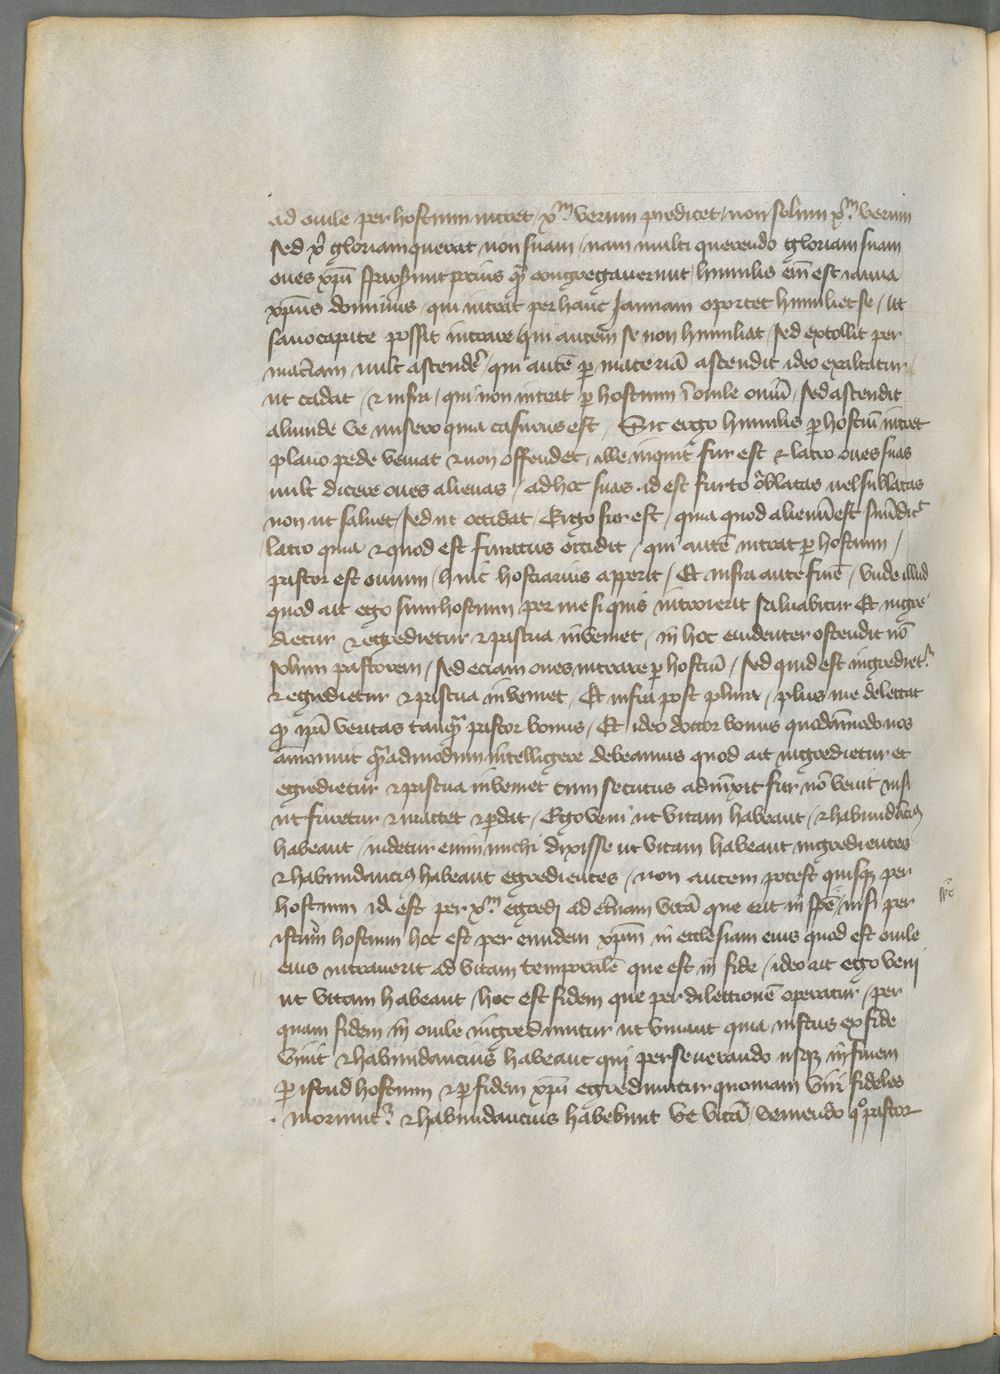 ad ouile per hostium intret xp̄m verum predicet non solum xp̄m verum
sed xp̄i gloriam querat non suam nam multi querendo gloriam suam
oues xp̄i sparserunt pocius q̄ȝ congregauerunt humilis em̄ est ianua
xpūs dominus qui intrat per hanc Januam oportet humiliet se ut
sano capite possit intrare qui autem se non humiliat sed extollit per
mac̄iam uult ascend̄e qui autē ꝑ maceriā ascendit ideo exaltatur
ut cadat ⁊ infra qui non intrat ꝑ hostium ī ouile ouiū sed ascendit
aliunde ve misero quia casurus est Sit ergo humilis ꝑ hostiū intret
plano pede veniat ⁊ non offendet ille inquit fur est ⁊ latro oues suas
uult dicere oues alienas ad hoc suas id est furto oblatas uel sublatas
non ut saluet sed ut occidat Ergo fur est quia quod alienū est suū dic̄
latro quia ⁊ quod est furatus occidit qui autē intrat ꝑ hostium
pastor est ouium huic hostiarius apperit Et infra ante finē Vnde illud
quod ait ego sum hostium per me si quis introierit saluabitur Et ingre
dietur ⁊ egredietur ⁊ pascua inveniet in hoc euidenter ostendit nō
solum pastorem sed eciam oues intrare ꝑ hostiū sed quid est ingrediet̄
⁊ egredietur ⁊ pascua inveniet Et infra post plura plus me delectat
q̄ ip̄a veritas tanq̄ȝ pastor bonus Et ideo doctor bonus quodāmodo nos
āmonuit q̄ȝadmodum intelligere debeamus quod ait ingredietur et
egredietur ⁊ pascua inveniet cum secutus adiūxit fur nō venit nisi
ut furetur ⁊ mactet ⁊ ꝑdat Ego veni ut vitam habeant ⁊ habundāciꝰ
habeant uidetur enim michi dixisse ut vitam habeant ingredientes
⁊ habundanciꝰ habeant egredientes non autem potest quisqȝ per
hostium id est per xp̄m egredi ad et̄nam vitā que erit in spē nisi per
istum hostium hoc est per eundem xpm̄ in ecclesiam eius quod est ouile
spē
eius intrauerit ad vitam temporalē que est in fide ideo ait ego veni
ut vitam habeant hoc est fidem que per dilectionē operatur per
quam fidem in ouile ingrediuntur ut viuant quia iustus ex fide
viuit ⁊ habundancius habeant qui perseuerando usqȝ in finem
ꝑ istud hostium ⁊ ꝑ fidem xpī egrediuntur quoniam viri fideles
moriunt̄ ⁊ habundancius habebunt ut vitā veniendo qͦ pastor